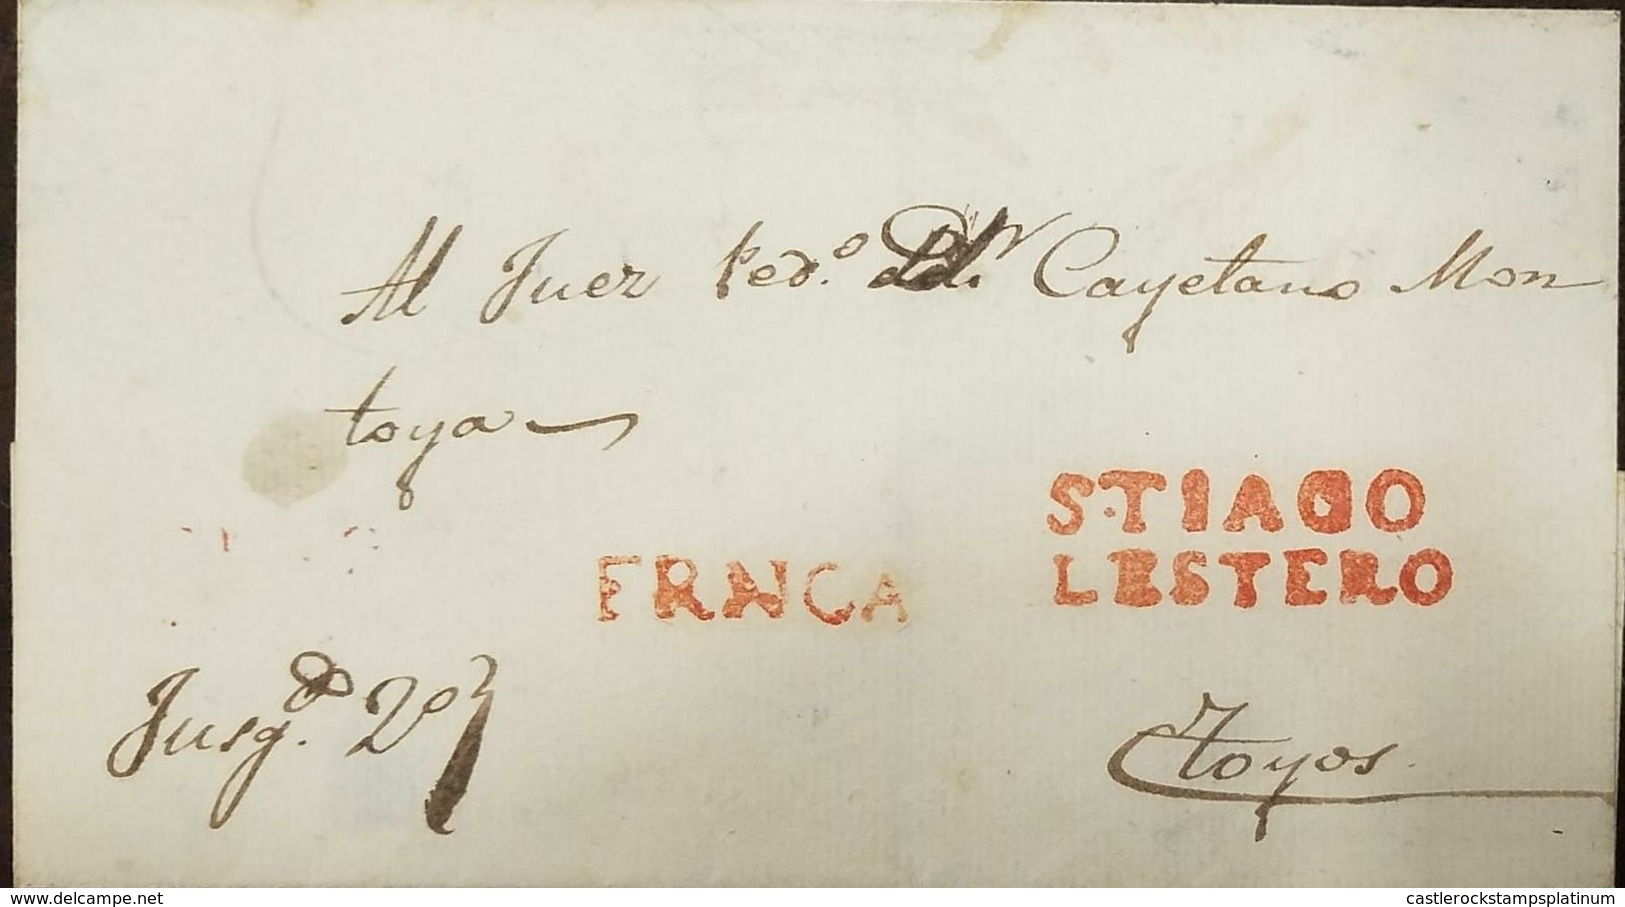 Al Juez Ped.º Cayetano Mon
toya
S.TIAGO
LESTERO
FRNCA
Jusg.do 2º
toyos
castlerockstampsplatinum